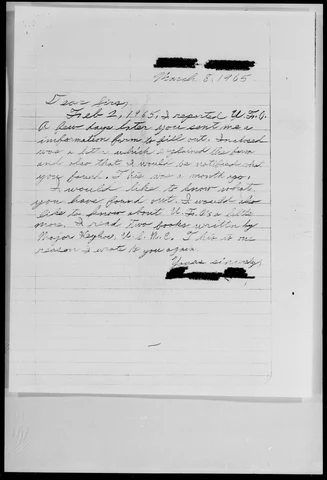 March 8, 1965
Dear Sirs,
Feb 2, 1965, I reported U.F.O.
A few days later you sent me a
information form to fill out. Inclosed
was a letter which explained the form
and also that I would be notified what
you found. This was a month ago.
I would like to know what
you have found out. I would also
like to know about U.F.O.s a little
more. I read two books written by
Major Keyhoe, U.S.M.C. This is one
reason I wrote to you again.
Yours sincerely,